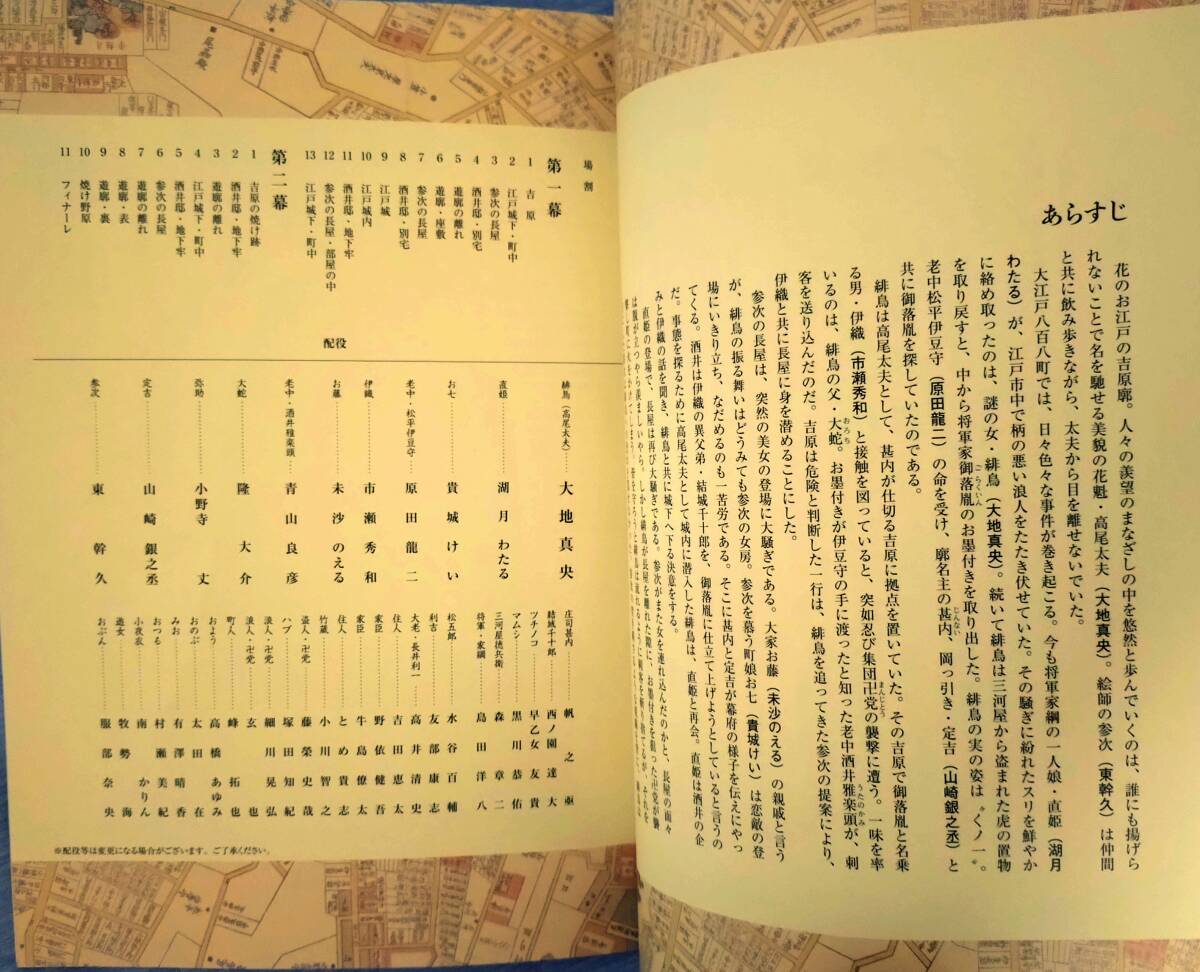 あらすじ
花のお江戸の吉原廓。人々の羨望のまなざしの中を悠然と歩んでいくのは、誰にも揚げら
れないことで名を馳せる美貌の花魁・高尾太夫（大地真央）。絵師の参次（東幹久）は仲間
と共に飲み歩きながら、太夫から目を離せないでいた。
大江戸八百八町では、日々色々な事件が巻き起こる。今も将軍家綱の一人娘・直姫（湖月
わたる）が、江戸市中で柄の悪い浪人をたたき伏せていた。その騒ぎに紛れたスリを鮮やか
に絡め取ったのは、謎の女・緋鳥（大地真央）。続いて緋鳥は三河屋から盗まれた虎の置物
を取り戻すと、中から将軍家御落胤のお墨付きを取り出した。緋鳥の実の姿は〝くノ一〟。
老中松平伊豆守（原田龍二）の命を受け、廓名主の甚内、岡っ引き・定吉（山崎銀之丞）と
共に御落胤を探していたのである。
緋鳥は高尾太夫として、甚内が仕切る吉原に拠点を置いていた。その吉原で御落胤と名乗
る男・伊織（市瀬秀和）と接触を図っていると、突如忍び集団卍党の襲撃に遭う。一味を率
いるのは、緋鳥の父・大蛇。お墨付きが伊豆守の手に渡ったと知った老中酒井雅楽頭が、刺
客を送り込んだのだ。吉原は危険と判断した一行は、緋鳥を追ってきた参次の提案により、
伊織と共に長屋に身を潜めることにした。
参次の長屋は、突然の美女の登場に大騒ぎである。大家お藤（未沙のえる）の親戚と言う
が、緋鳥の振る舞いはどうみても参次の女房。参次を慕う町娘お七（貴城けい）は恋敵の登
場にいきり立ち、なだめるのも一苦労である。そこに甚内と定吉が幕府の様子を伝えにやっ
てくる。酒井は伊織の異父弟・結城千十郎を、御落胤に仕立て上げようとしていると言うの
だ。事態を探るために高尾太夫として城内に潜入した緋鳥は、直姫と再会。直姫は酒井の企
みと伊織の話を聞き、緋鳥と共に城下へ下る決意をする。
直姫の登場で、長屋は再び大騒ぎである。参次がまた女を連れ込んだのかと、長屋の面々
は腹が立つやら羨ましいやら。しかし緋鳥が長屋を離れた隙に、お墨付きを狙った卍党が長
場割
第一幕
1 吉原
2 江戸城下・町中
3 参次の長屋
4 酒井邸・別宅
5 遊廓の離れ
6 遊廓・座敷
7 参次の長屋
8 酒井邸・別宅
9 江戸城
10 江戸城内
11 酒井邸・地下牢
12 参次の長屋・部屋の中
13 江戸城下・町中
第二幕
1 吉原の焼け跡
2 酒井邸・地下牢
3 遊廓の離れ
4 江戸城下・町中
5 酒井邸・地下牢
6 参次の長屋
7 遊廓の離れ
8 遊廓・表
9 遊廓・裏
10 焼け野原
11 フィナーレ
配役
緋鳥（高尾太夫） 大地真央
直姫 湖月わたる
お七 貴城けい
老中・松平伊豆守 原田龍二
伊織 市瀬秀和
お藤 未沙のえる
老中・酒井雅楽頭 青山良彦
大蛇 隆大介
弥助 小野寺丈
定吉 山崎銀之丞
参次 東幹久
庄司甚内 帆之亟
結城千十郎 西ノ園達大
ツチノコ 早乙女友貴
マムシ 黒川恭佑
三河屋徳兵衛 森章二
将軍・家綱 島田洋八
松五郎 水谷百輔
利吉 友部康志
大老・長井利一 高井清史
住人 吉田恵太
家臣 野依健吾
家臣 牛島僚太
住人 とめ貴志
竹蔵 小川智之
盗人・卍党 藤榮史哉
ハブ 塚田知紀
浪人・卍党 細川晃弘
浪人・卍党 玄也
町人 峰拓也
およう 高橋あゆみ
おのぶ 太田在
みお 有澤晴香
おつる 村瀬美紀
小夜衣 南かりん
遊女 牧勢海
おぶん 服部奈央
※配役等は変更になる場合がございます。ご了承ください。